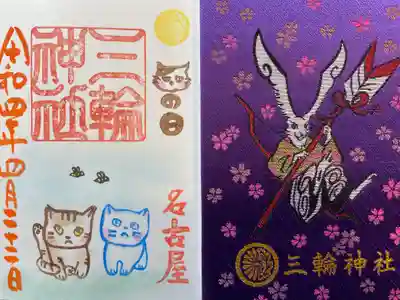 三輪
神社
の日
令和四年四月二十二日
名古屋
三輪神社